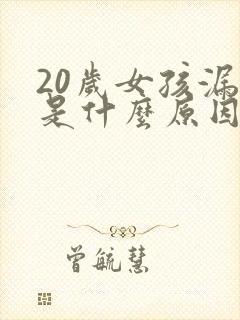 20歲女孩漏
是什麼原因
曾毓慧